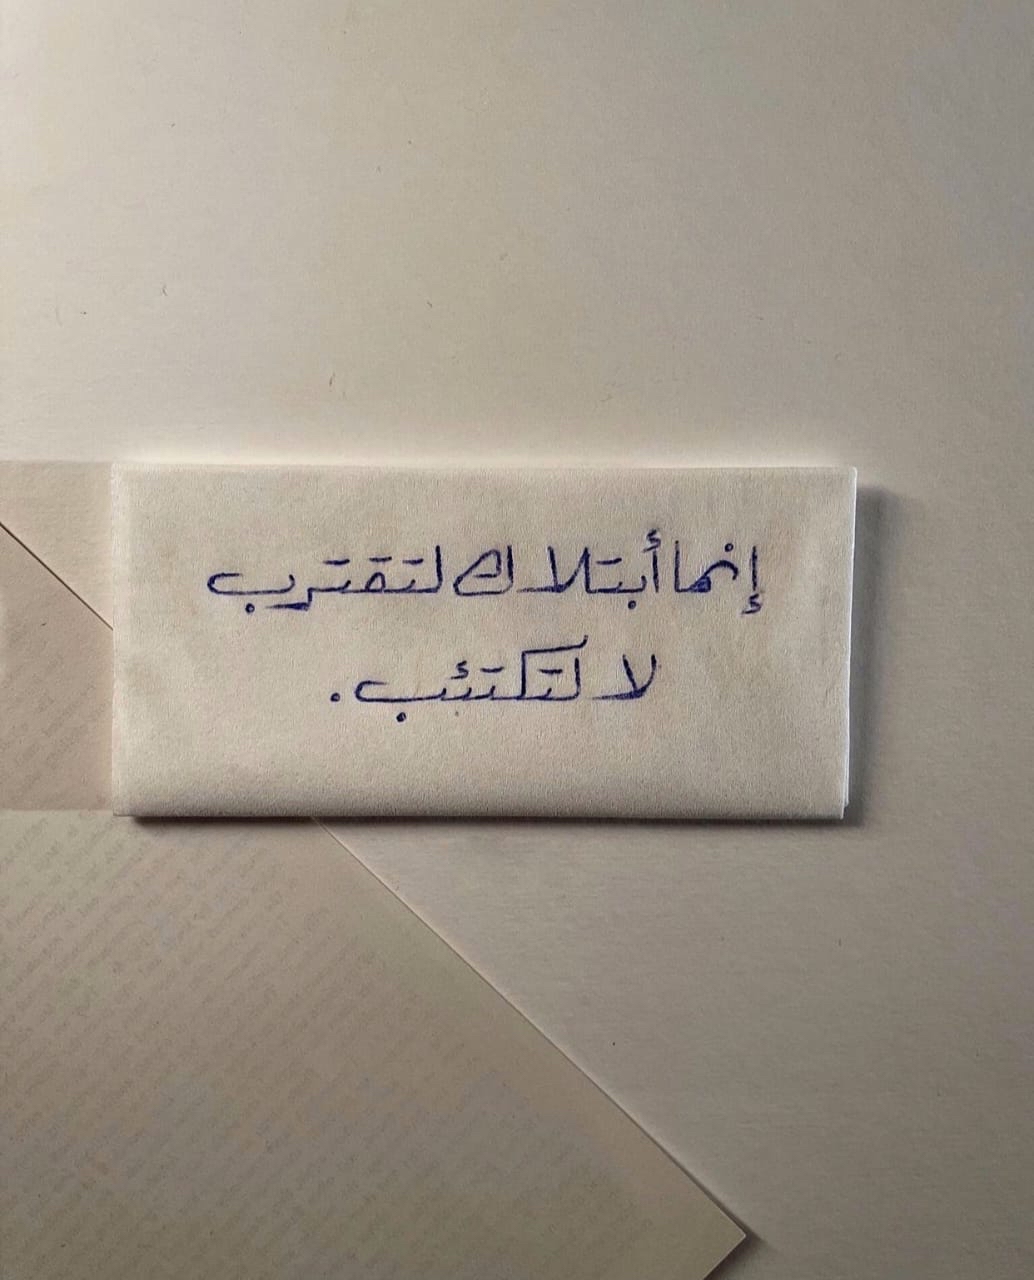 إنما أبتلاك لتقترب
لا لتكتئب.